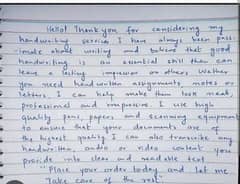 Hello! Thank you for considering my
handwriting service. I have always been pass-
ionate about writing and believe that good
handwriting is an essential skill that can
leave a lasting impression on others. Whether
you need handwritten assignments, notes or
letters, I can make them look neat,
professional and impressive. I use high
quality pens, papers and scanning equipment
to ensure that your documents are of
the highest quality. I can also transcribe any
handwritten, audio or video content you
provide into clear and readable text.
"Place your order today and let me
Take care of the rest."